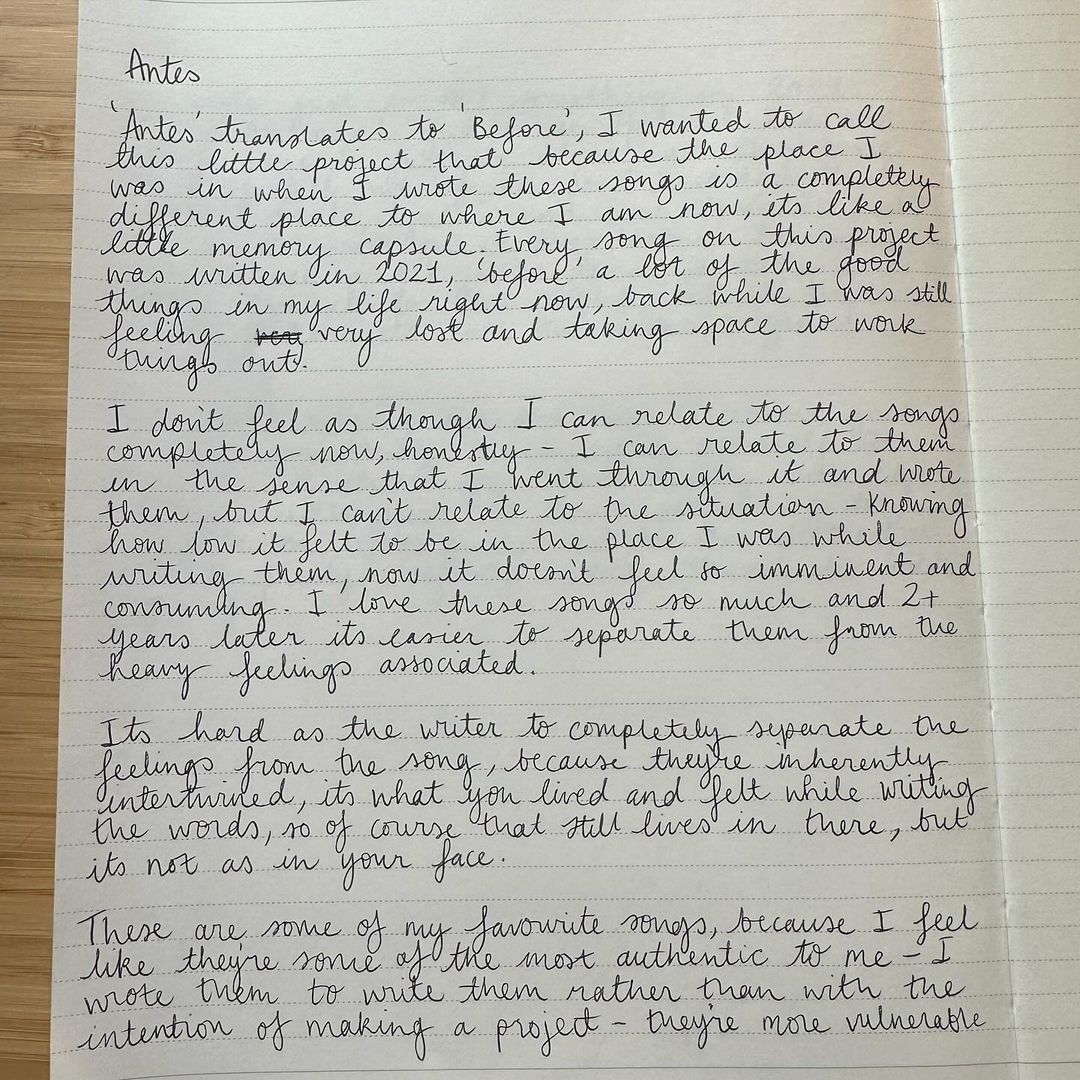 Antes
'Antes' translates to 'Before', I wanted to call
this little project that because the place I
was in when I wrote these songs is a completely
different place to where I am now, its like a
little memory capsule. Every song on this project
was written in 2021, 'before' a lot of the good
things in my life right now, back while I was still
feeling very very lost and taking space to work
things out.
I don't feel as though I can relate to the songs
completely now, honestly - I can relate to them
in the sense that I went through it and wrote
them, but I can't relate to the situation - Knowing
how low it felt to be in the place I was while
writing them, now it doesn't feel so imminent and
consuming. I love these songs so much and 2+
years later its easier to separate them from the
heavy feelings associated.
Its hard as the writer to completely separate the
feelings from the song, because they're inherently
interturned, its what you lived and felt while writing
the words, so of course that still lives in there, but
its not as in your face.
These are some of my favourite songs, because I feel
like they're some of the most authentic to me - I
wrote them to write them rather than with the
intention of making a project - they're more vulnerable